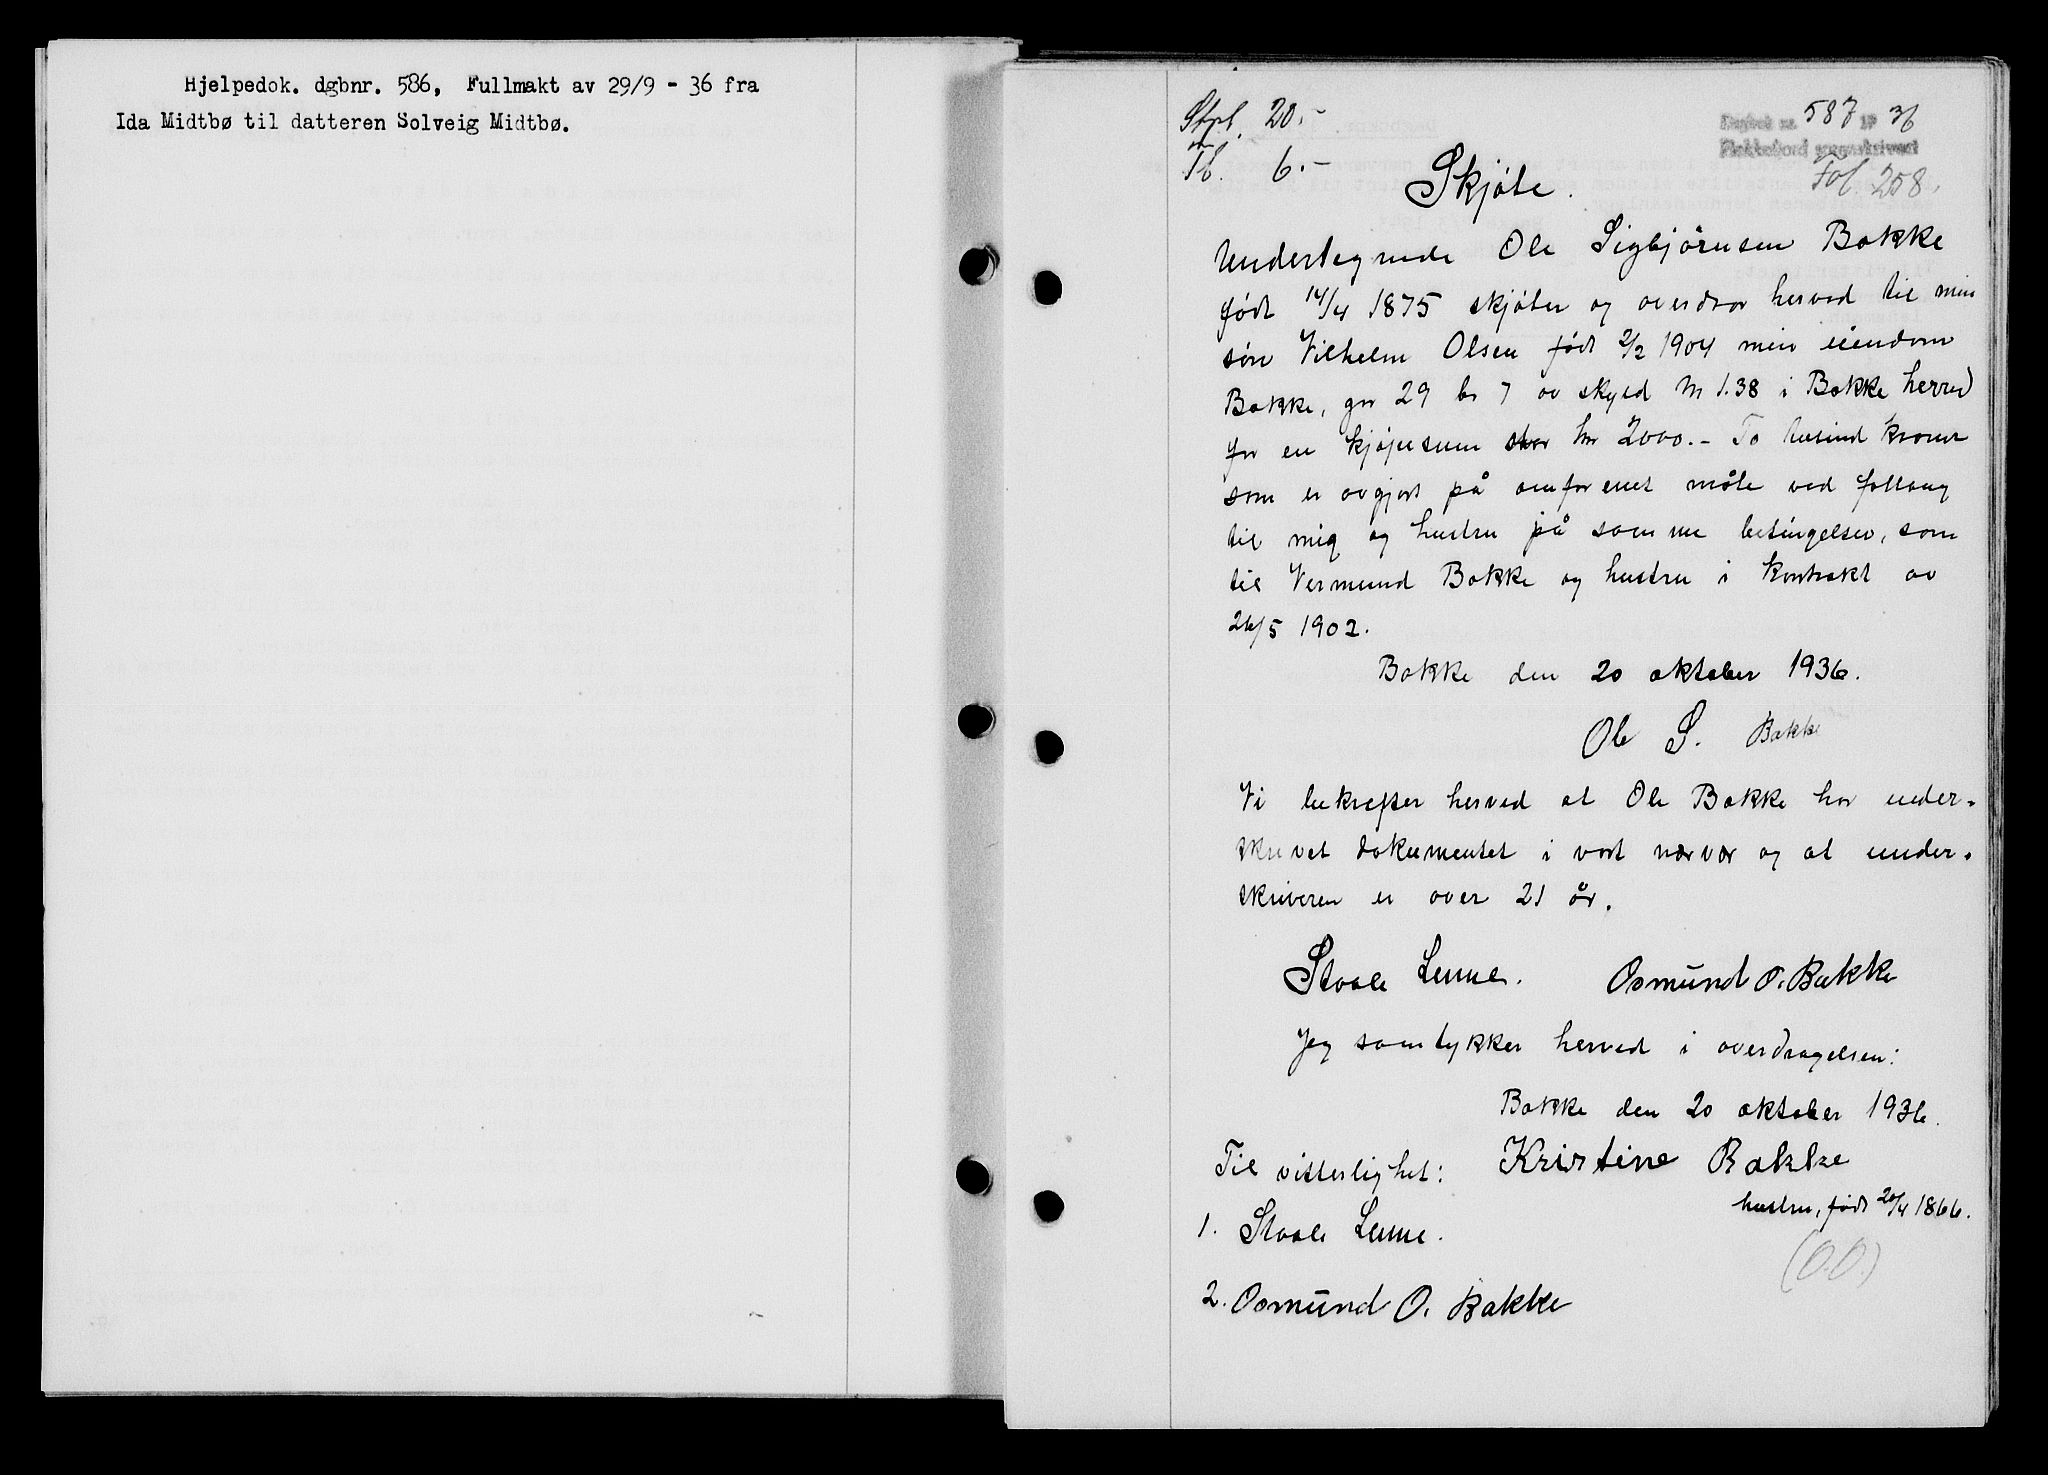 Hjelpedok. dgbnr. 586, Fullmakt av 29/9 - 36 fra
Ida Midtbø til datteren Solveig Midtbø.
Stpl. 20.-
Tl. 6.-
Dagbok nr. 587 19 36
Flekkefjord sorenskriveri
Fol. 258.
Skjøte.
Undertegnede Ole Sigbjørnsen Bakke
født 14/4 1875 skjøter og overdrar herved til min
søn Vilhelm Olsen født 2/2 1904 min eiendom
Bakke, gnr 29 br 7 av skyld M 1.38 i Bakke herred
for en kjøpesum stor kr 2000.- To tusind kroner
som er avgjort på omforenet måte ved føllaug
til mig og hustru på samme betingelser, som
til Vermund Bakke og hustru i kontrakt av
26/5 1902.
Bakke den 20 oktober 1936.
Ole S. Bakke
Vi bekrefter herved at Ole Bakke har under-
skrevet dokumentet i vort nærvær og at under-
skriveren er over 21 år.
Staale Lunne. Osmund O. Bakke
Jeg samtykker herved i overdragelsen:
Bakke den 20 oktober 1936.
Til vitterlighet: Kristine Bakke
hustru, født 20/4 1866.
1. Staale Lunne.
(O.O.)
2. Osmund O. Bakke